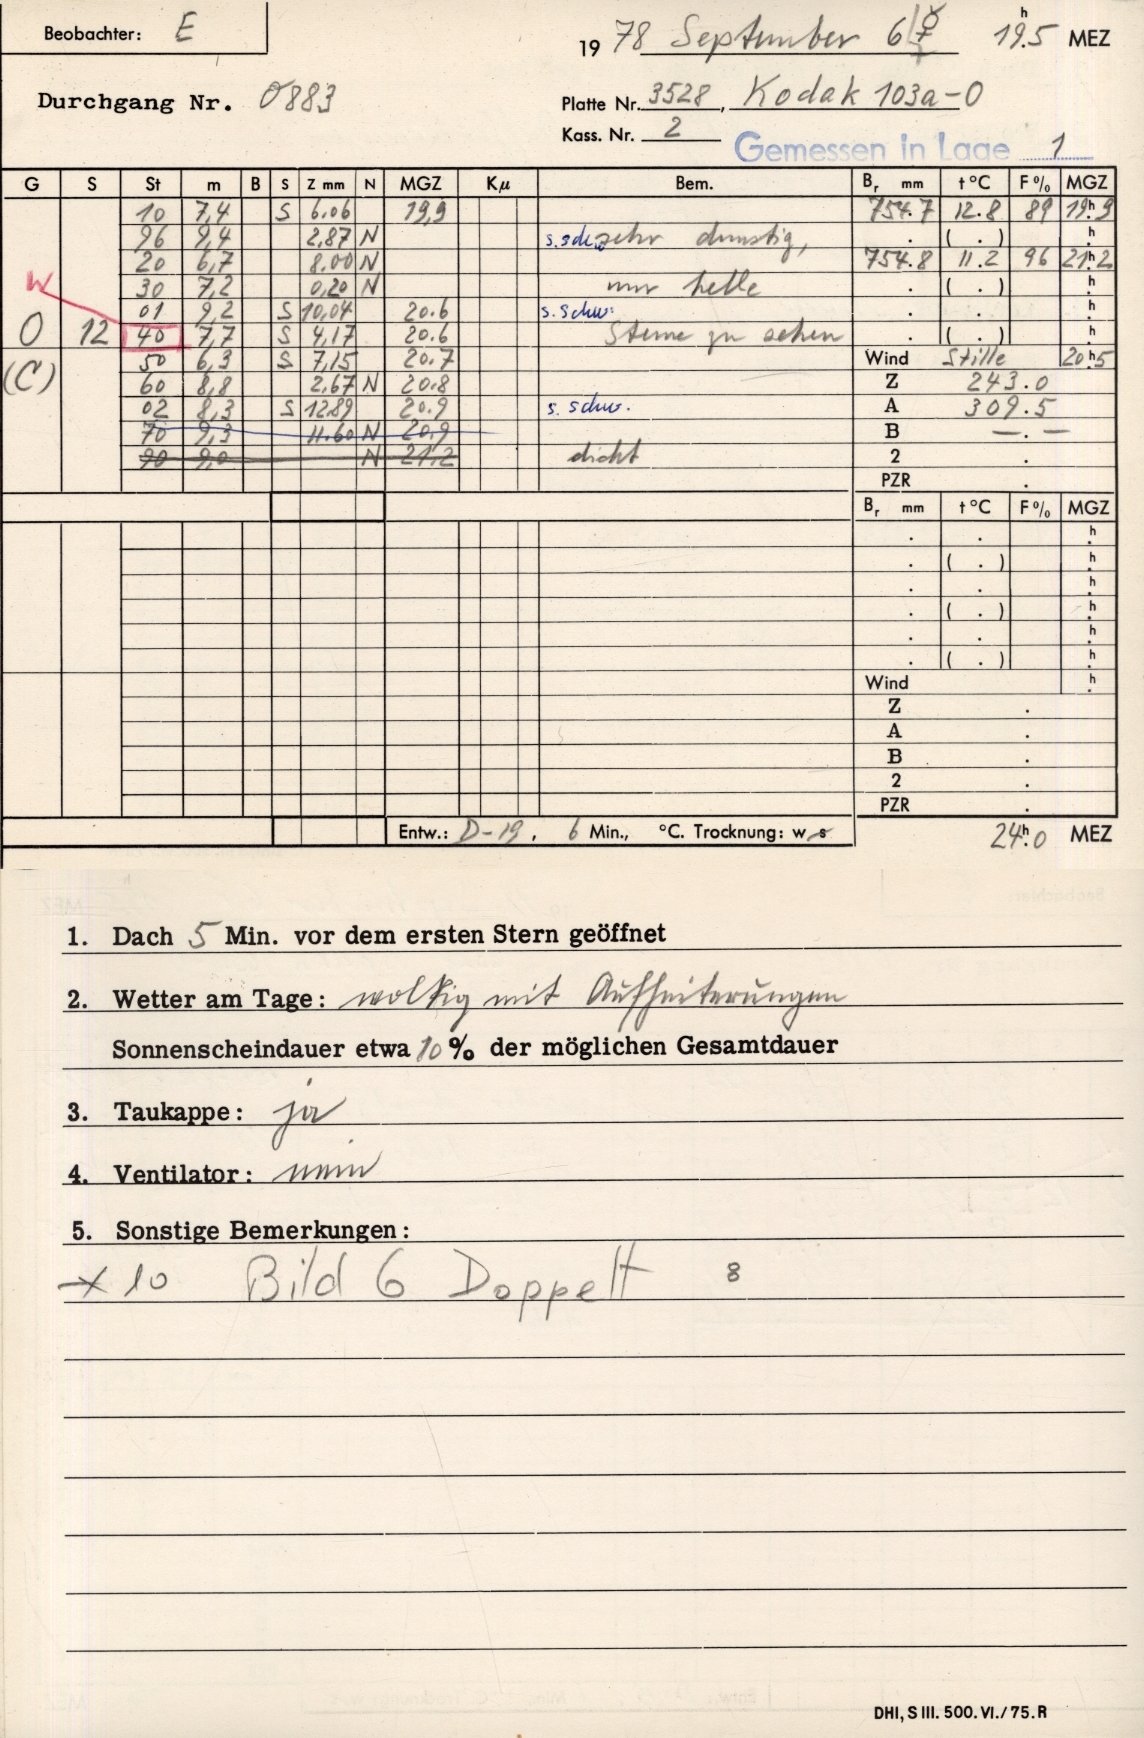 Beobachter: E
19 78 September 6 19h.5 MEZ
Durchgang Nr. 0883
Platte Nr. 3528, Kodak 103a-O
Kass. Nr. 2
Gemessen in Lage 1
G S St m B S Z mm N MGZ Kµ Bem. Br mm t°C F% MGZ
10 7,4 S 6.06 19,9 754.7 12.8 89 19h.9
96 9,4 2,87 N s.schw. sehr dunstig, . ( . ) h
20 6,7 8.00 N 754.8 11.2 96 21h.2
W 30 7,2 0,20 N nur helle . ( . ) h
01 9,2 S 10,04 20.6 s.schw. . . h
O 12 40 7,7 S 4,17 20.6 Sterne zu sehen . ( . ) h
(C) 50 6,3 S 7,15 20.7 Wind Stille 20h.5
60 8,8 2,67 N 20.8 Z 243.0
02 8,3 S 12.89 20.9 s. schw. A 309.5
70 9,3 11.60 N 20,9 B —.—
90 9,0 N 21,2 dicht 2 .
PZR .
Br mm t°C F% MGZ
. . h
. ( . ) h
. . h
. ( . ) h
. . h
. ( . ) h
Wind h
Z .
A .
B .
2 .
PZR .
Entw.: D-19, 6 Min., °C. Trocknung: w s
24h.0 MEZ
1. Dach 5 Min. vor dem ersten Stern geöffnet
2. Wetter am Tage: wolkig mit Aufheiterungen
Sonnenscheindauer etwa 10% der möglichen Gesamtdauer
3. Taukappe: ja
4. Ventilator: nein
5. Sonstige Bemerkungen:
10 Bild 6 Doppelt 8
DHI, S III. 500. VI./75. R